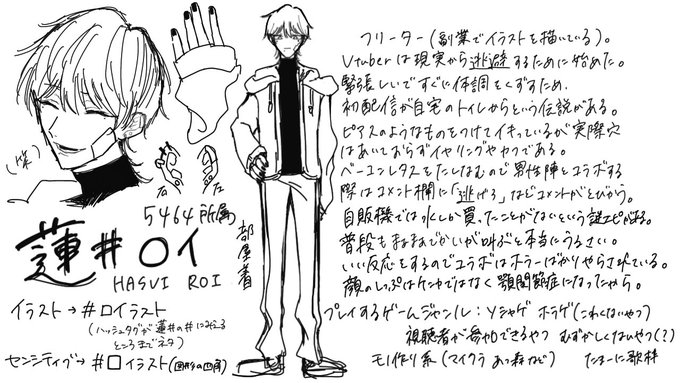 フリーター(副業でイラストを描いている)。
Vtuberは現実から逃避するために始めた。
緊張しいですぐに体調をくずすため、
初配信が自宅のトイレからという伝説がある。
ピアスのようなものをつけてイキっているが実際穴
はあいておらずイヤリングやカフである。
ベーコンレタスをたしなむので男性陣とコラボする
際はコメント欄に「逃げろ」などコメントがとびかう。
自販機では水しか買ったことがないという謎エピがある。
普段もまあまあでかいが叫ぶと本当にうるさい。
いい反応をするのでコラボはホラーばかりやらされている。
顔のしっぷはケンカではなく顎関節症になったから。
プレイするゲームジャンル:ソシャゲ ホラゲ(こわくないやつ)
視聴者が参加できるやつ むずかしくないやつ(?)
モノ作り系(マイクラ あつ森など) たまーに歌枠
(笑)
右
左
5464所属
蓮井〇イ
HASUI ROI
部屋着
イラスト→#ロイラスト
(ハッシュタグが蓮井の井にみえる
ところまでネタ)
センシティブ→#□イラスト(図形の四角)